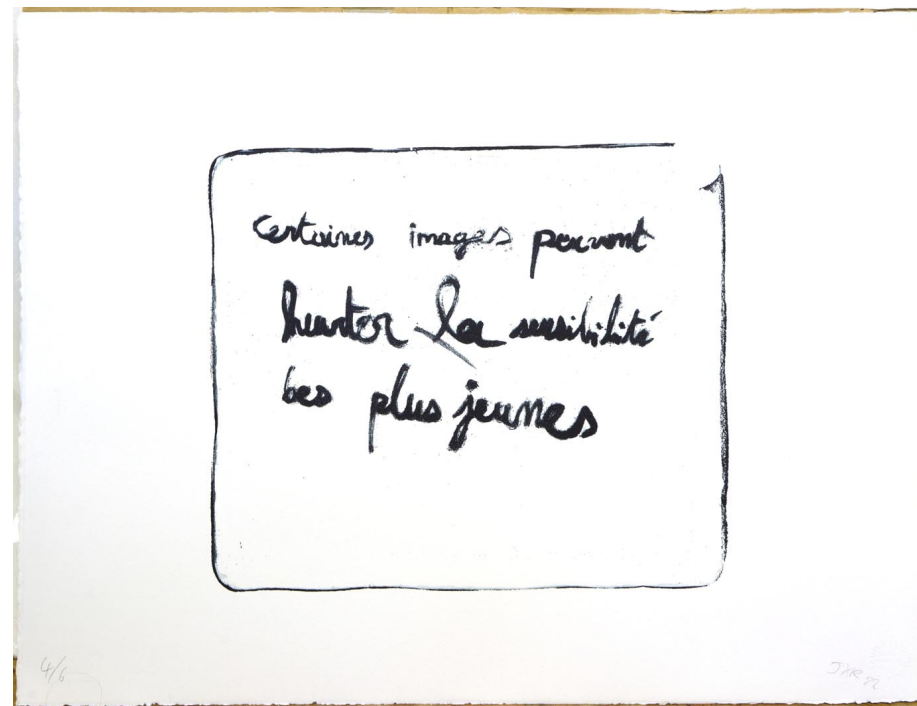 Certaines images peuvent
heurter la sensibilité
des plus jeunes
4/6